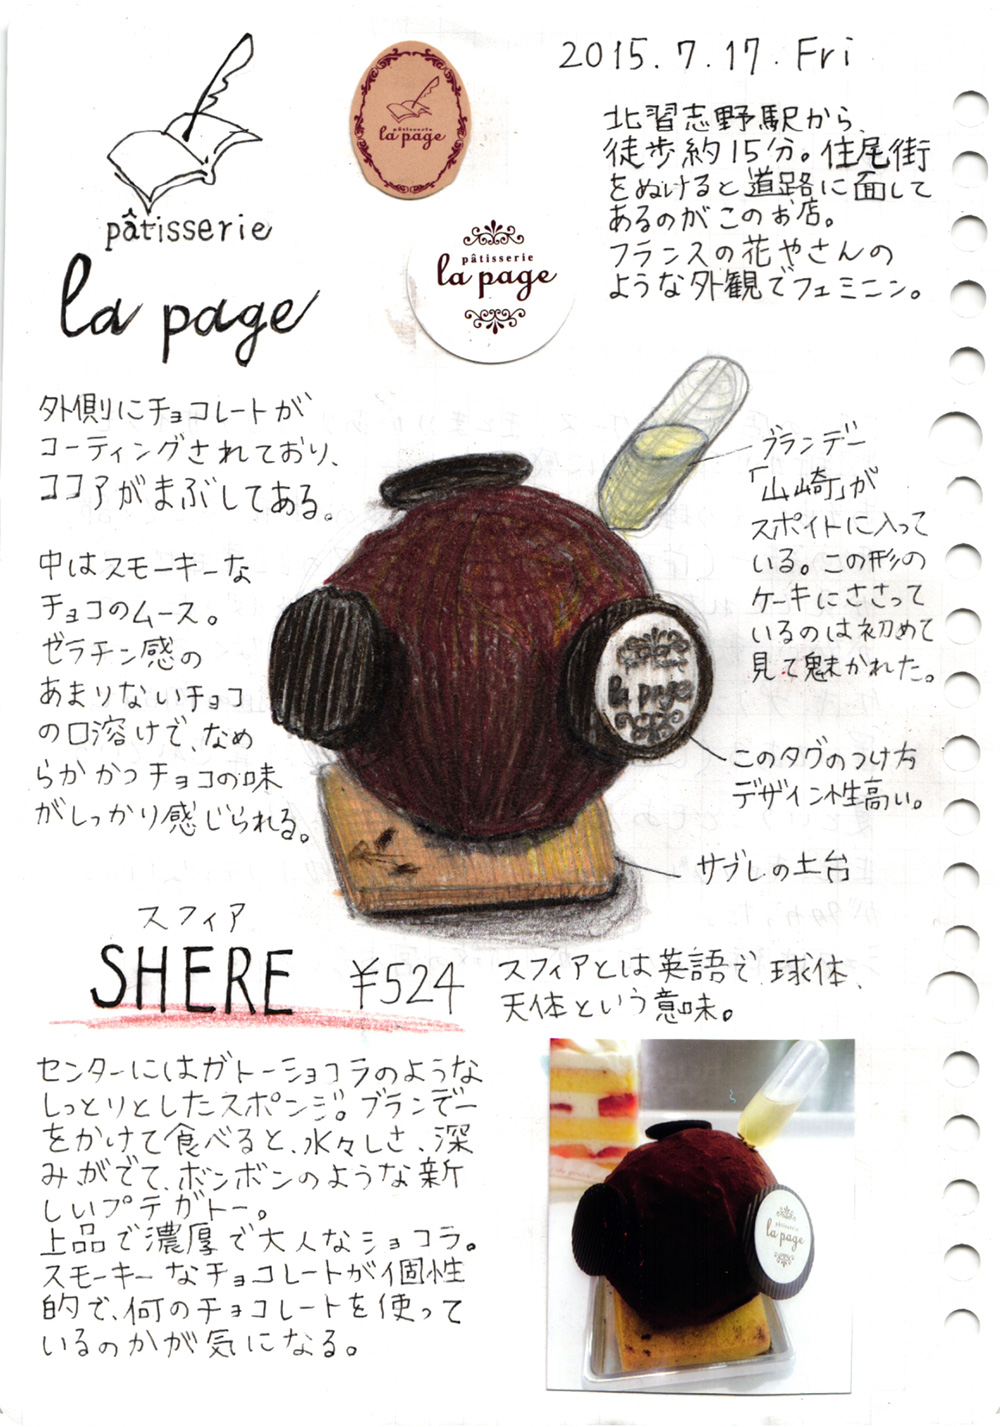 pâtisserie
la page
pâtisserie
la page
pâtisserie
la page
2015.7.17.Fri
北習志野駅から、
徒歩約15分。住尾街
をぬけると道路に面して
あるのがこのお店。
フランスの花やさんの
ような外観でフェミニン。
外側にチョコレートが
コーティングされており、
ココアがまぶしてある。
中はスモーキーな
チョコのムース。
ゼラチン感の
あまりないチョコ
の口溶けで、なめ
らかかつチョコの味
がしっかり感じられる。
ブランデー
「山崎」が
スポイトに入って
いる。この形の
ケーキにささって
いるのは初めて
見て魅かれた。
la page
このタグのつけ方
デザイン性高い。
サブレの土台
スフィア
SHERE ¥524
スフィアとは英語で、球体、
天体という意味。
センターにはガトーショコラのような
しっとりとしたスポンジ。ブランデー
をかけて食べると、水々しさ、深
みがでて、ボンボンのような新
しいプチガトー。
上品で濃厚で大人なショコラ。
スモーキーなチョコレートが個性
的で、何のチョコレートを使って
いるのかが気になる。
pâtisserie
la page